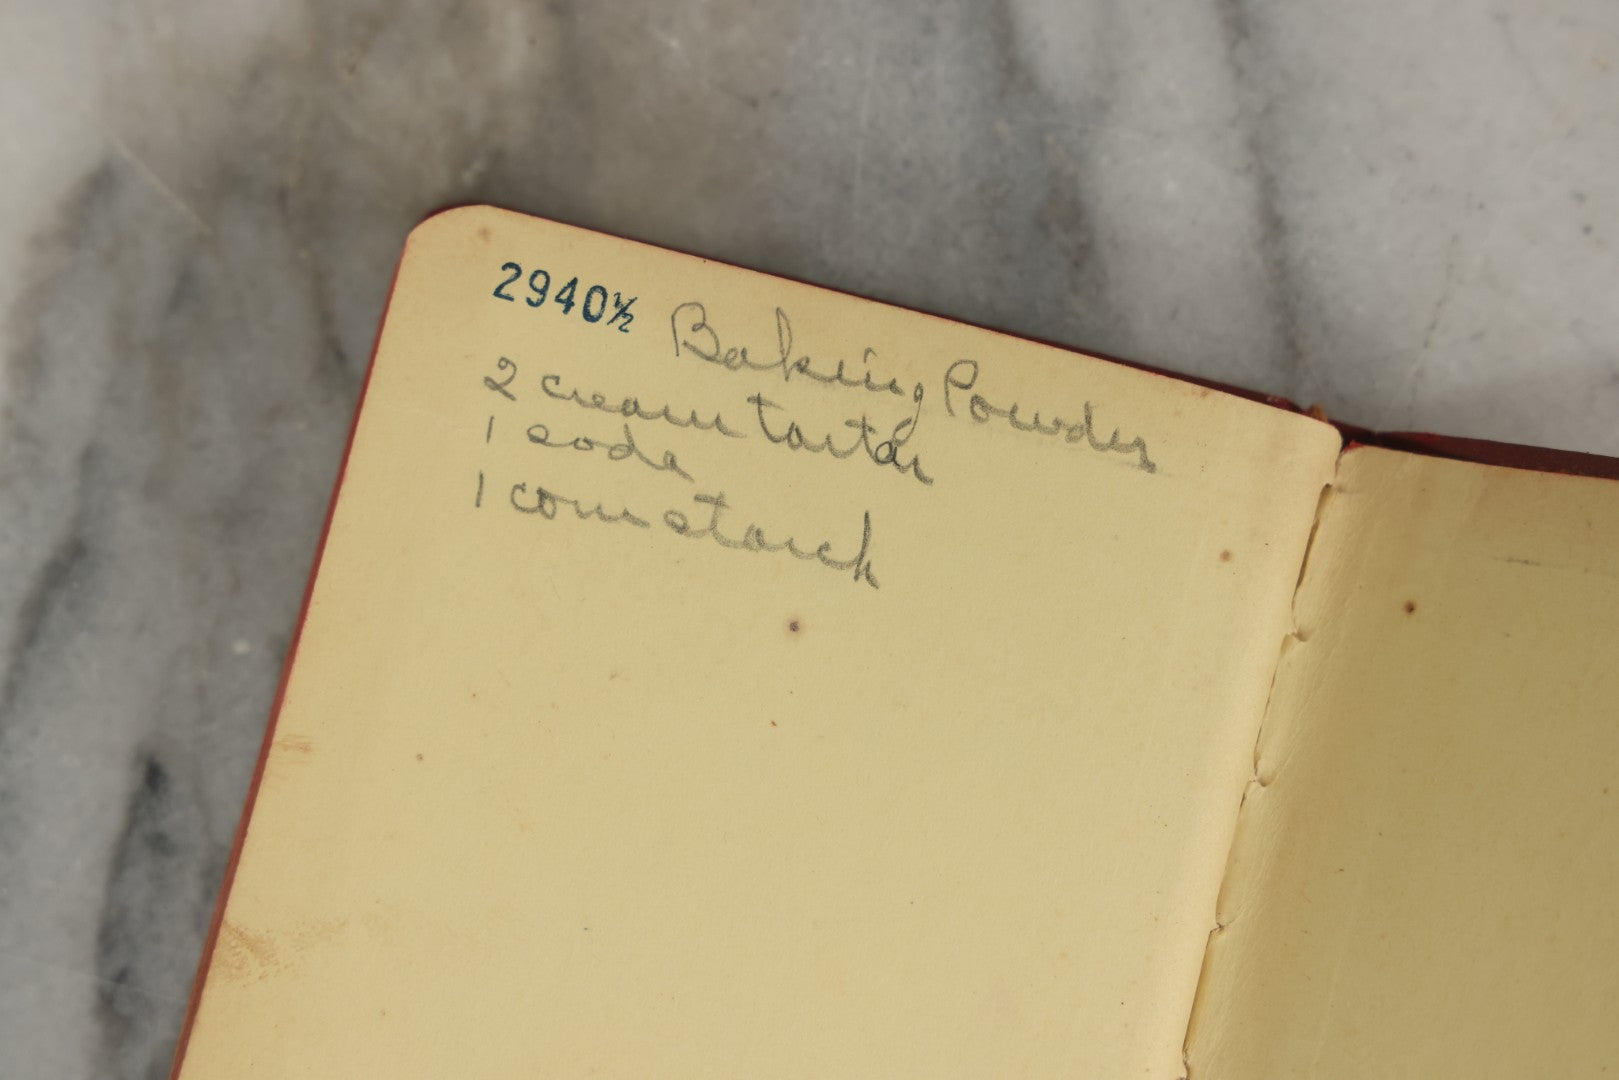 2940½ Baking Powder
2 cream tartar
1 soda
1 cornstarch